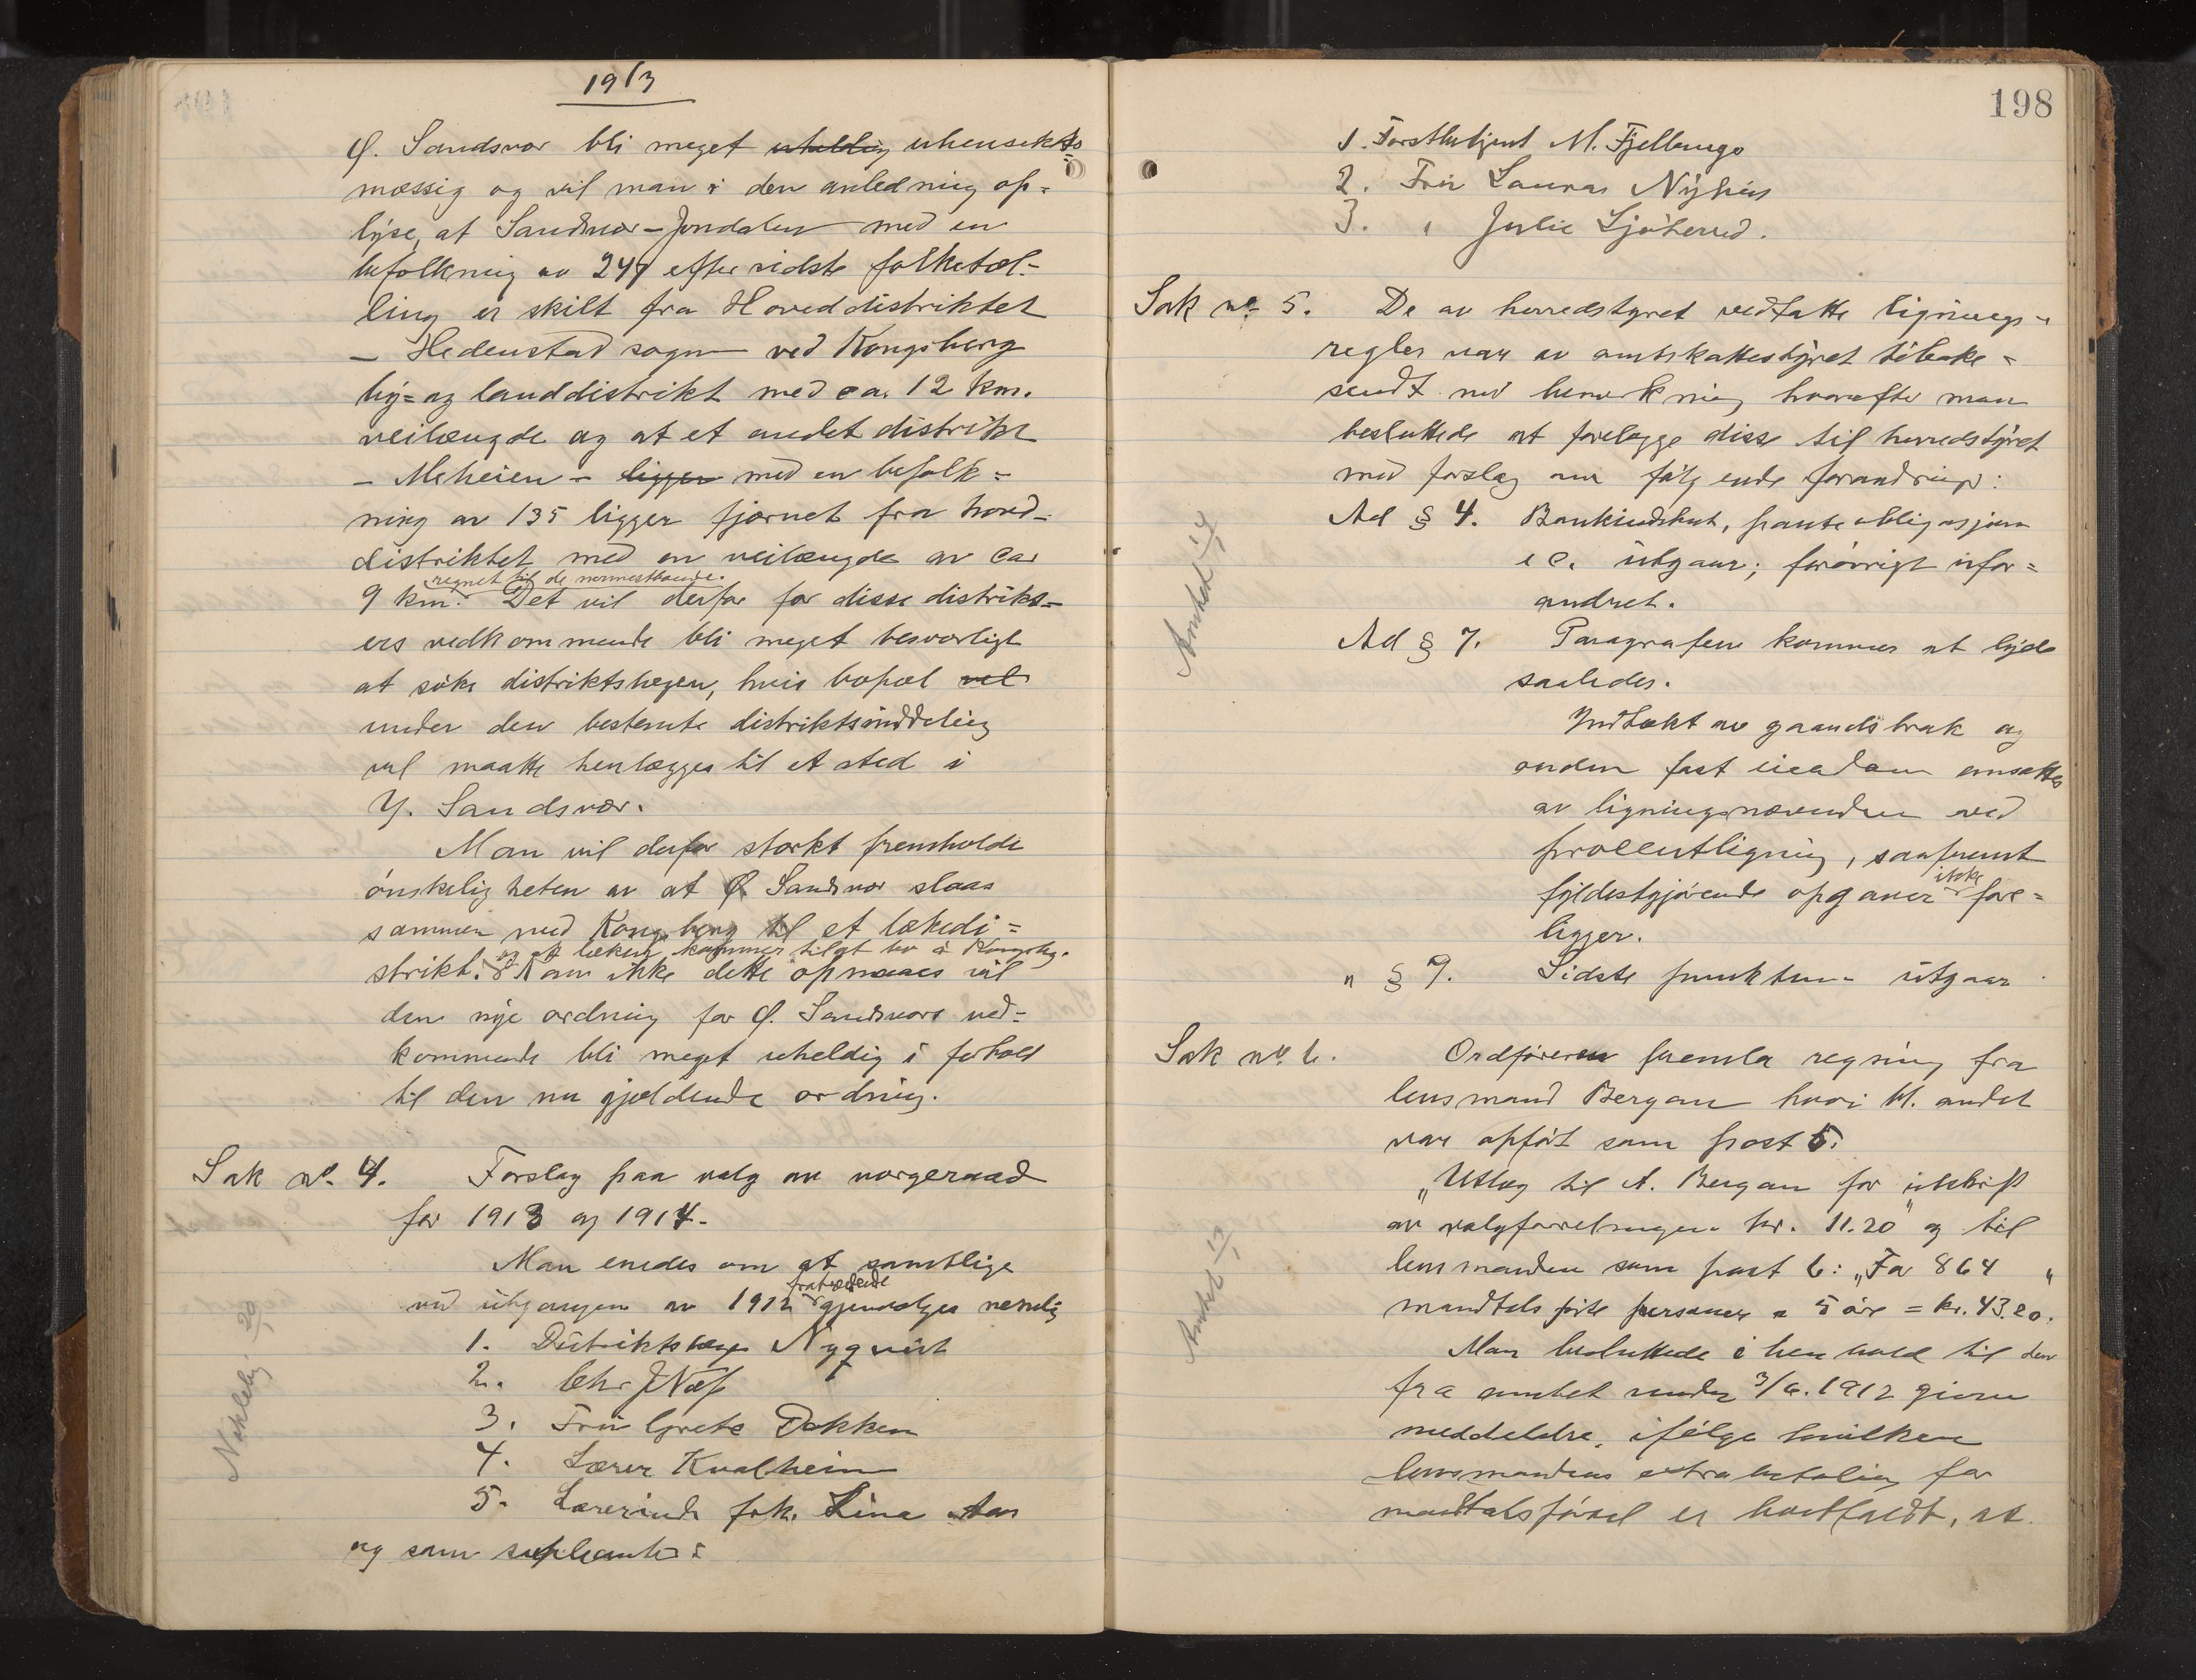 1913
Ø. Sandsvær bli meget uheldig uhensikts
mæssig og vil man i den anledning op=
lyse, at Sandsvær-Jondalen med en
befolkning av 247 efter sidste folketæl-
ling er skilt fra Hoveddistriktet
- Hedenstad sogn ved Kongsberg
by= og landdistrikt med ca. 12 km.
veilængde og at et andet distrikt
- Meheien - ligger med en befolk=
ning av 135 ligger fjærnet fra hoved-
distriktet med en veilængde av ca
regnet til de nærmestboende.
9 km. Det vil derfor for disse distrikt-
ers vedkommende bli meget besværligt
at søke distriktslægen, hvis bopæl vil
under den bestemte distriktsinddeling
vil maatte henlægges til et sted i
Y. Sandsvær.
Man vil derfor stærkt fremholde
ønskeligheten av at Ø. Sandsvær slaaes
sammen med Kongsberg til et lækedi=
og at lækeren kommer til at bo i Kongsbg.
strikt. Kan ikke dette opnaaes vil
den nye ordning for Ø. Sandsværs ved=
kommende bli meget uheldig i forhold
til den nu gjældende ordning.
Sak no. 4. Forslag paa valg av vergeraad
for 1913 og 1914.
Man enedes om at samtlige
fratrædende
ved utgangen av 1912 gjenvælges nemlig
1. Distriktslæge Nyquist
2. Chr. J Næf
3. Fru Grete Dokken
4. Lærer Kvalheim
5. Lærerinde frk. Lina Aas
og som suppleanter:
198
1. Forstbetjent M. Fjellberge
2. Fru Laura Nyhus
3. " Julie Sjøterud.
Sak no. 5. De av herredstyret vedtatte lignings-
regler var av amtskattestyret tilbake=
sendt med bemerkning hvorefter man
besluttede at forelægge disse til herredstyret
med forslag om følgende forandringer:
Ad § 4. Bankindskud, panteobligasjoner
utgaar; forøvrigt ufor=
andret.
Ad § 7. Paragrafen kommer at lyde
saaledes.
Indtækt av gaardsbruk og
anden fast eiendom ansættes
av ligningsnævnden ved
procentligning, saafremt
ikke
fyldestgjørende opgaver fore=
ligger.
" § 9. Sidste punktum utgaar.
Sak no. 6. Ordføreren fremla regning fra
lensmand Bergan hvori bl. andet
var opført som post 5.
"Utlæg til A. Bergan for utskrift
av valgforretningen kr. 11.20" og til
lensmanden som post 6: "For 864 "
mandtalsførte personer a 5 øre = kr. 43.20.
Man besluttede i henhold til den
fra amtet under 3/6. 1912 givne
meddelelse, ifølge hvilken
lensmandens extra betaling for
mandtalsførsel er bortfaldt, at